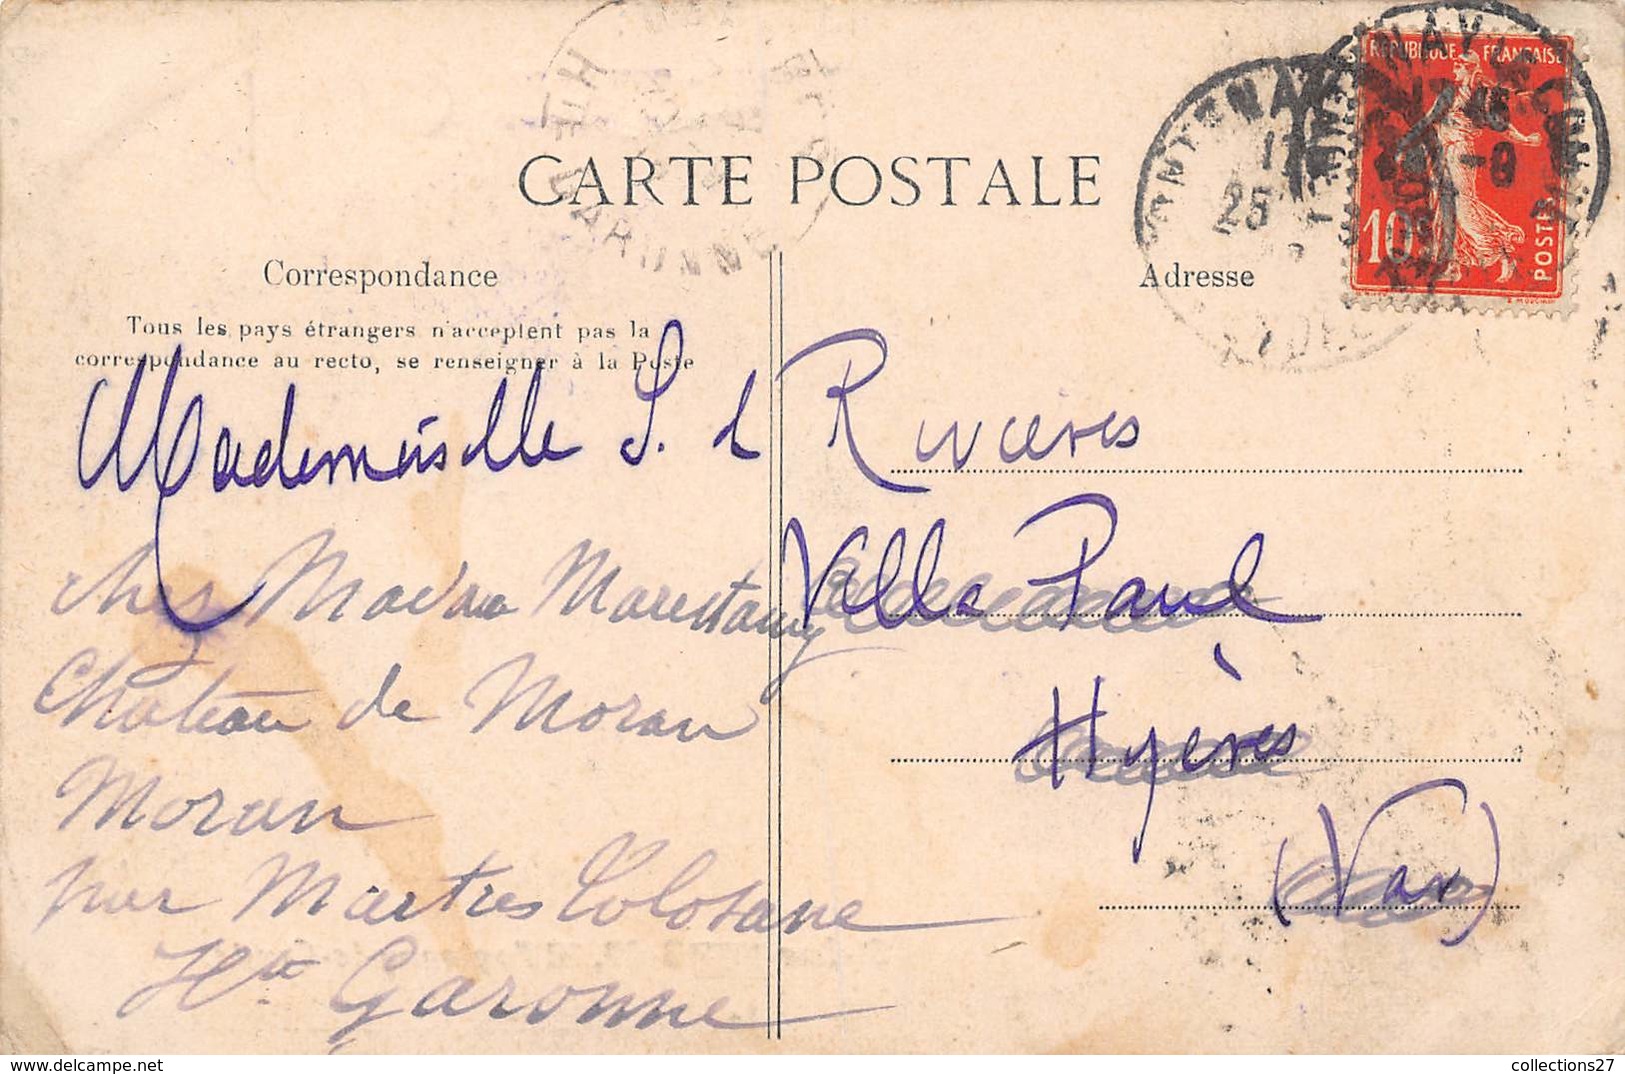 CARTE POSTALE
Correspondance
Adresse
Tous les pays étrangers n'acceptent pas la
correspondance au recto, se renseigner à la Poste
REPUBLIQUE FRANCAISE
10
POSTES
25
HTE GARONNE
Mademoiselle S. de Rivières
Villa Paul
Hyères
(Var)
chez Madame Marestaing
Château de Moran
Moran
par Martres Tolosane
Hte Garonne
collections27